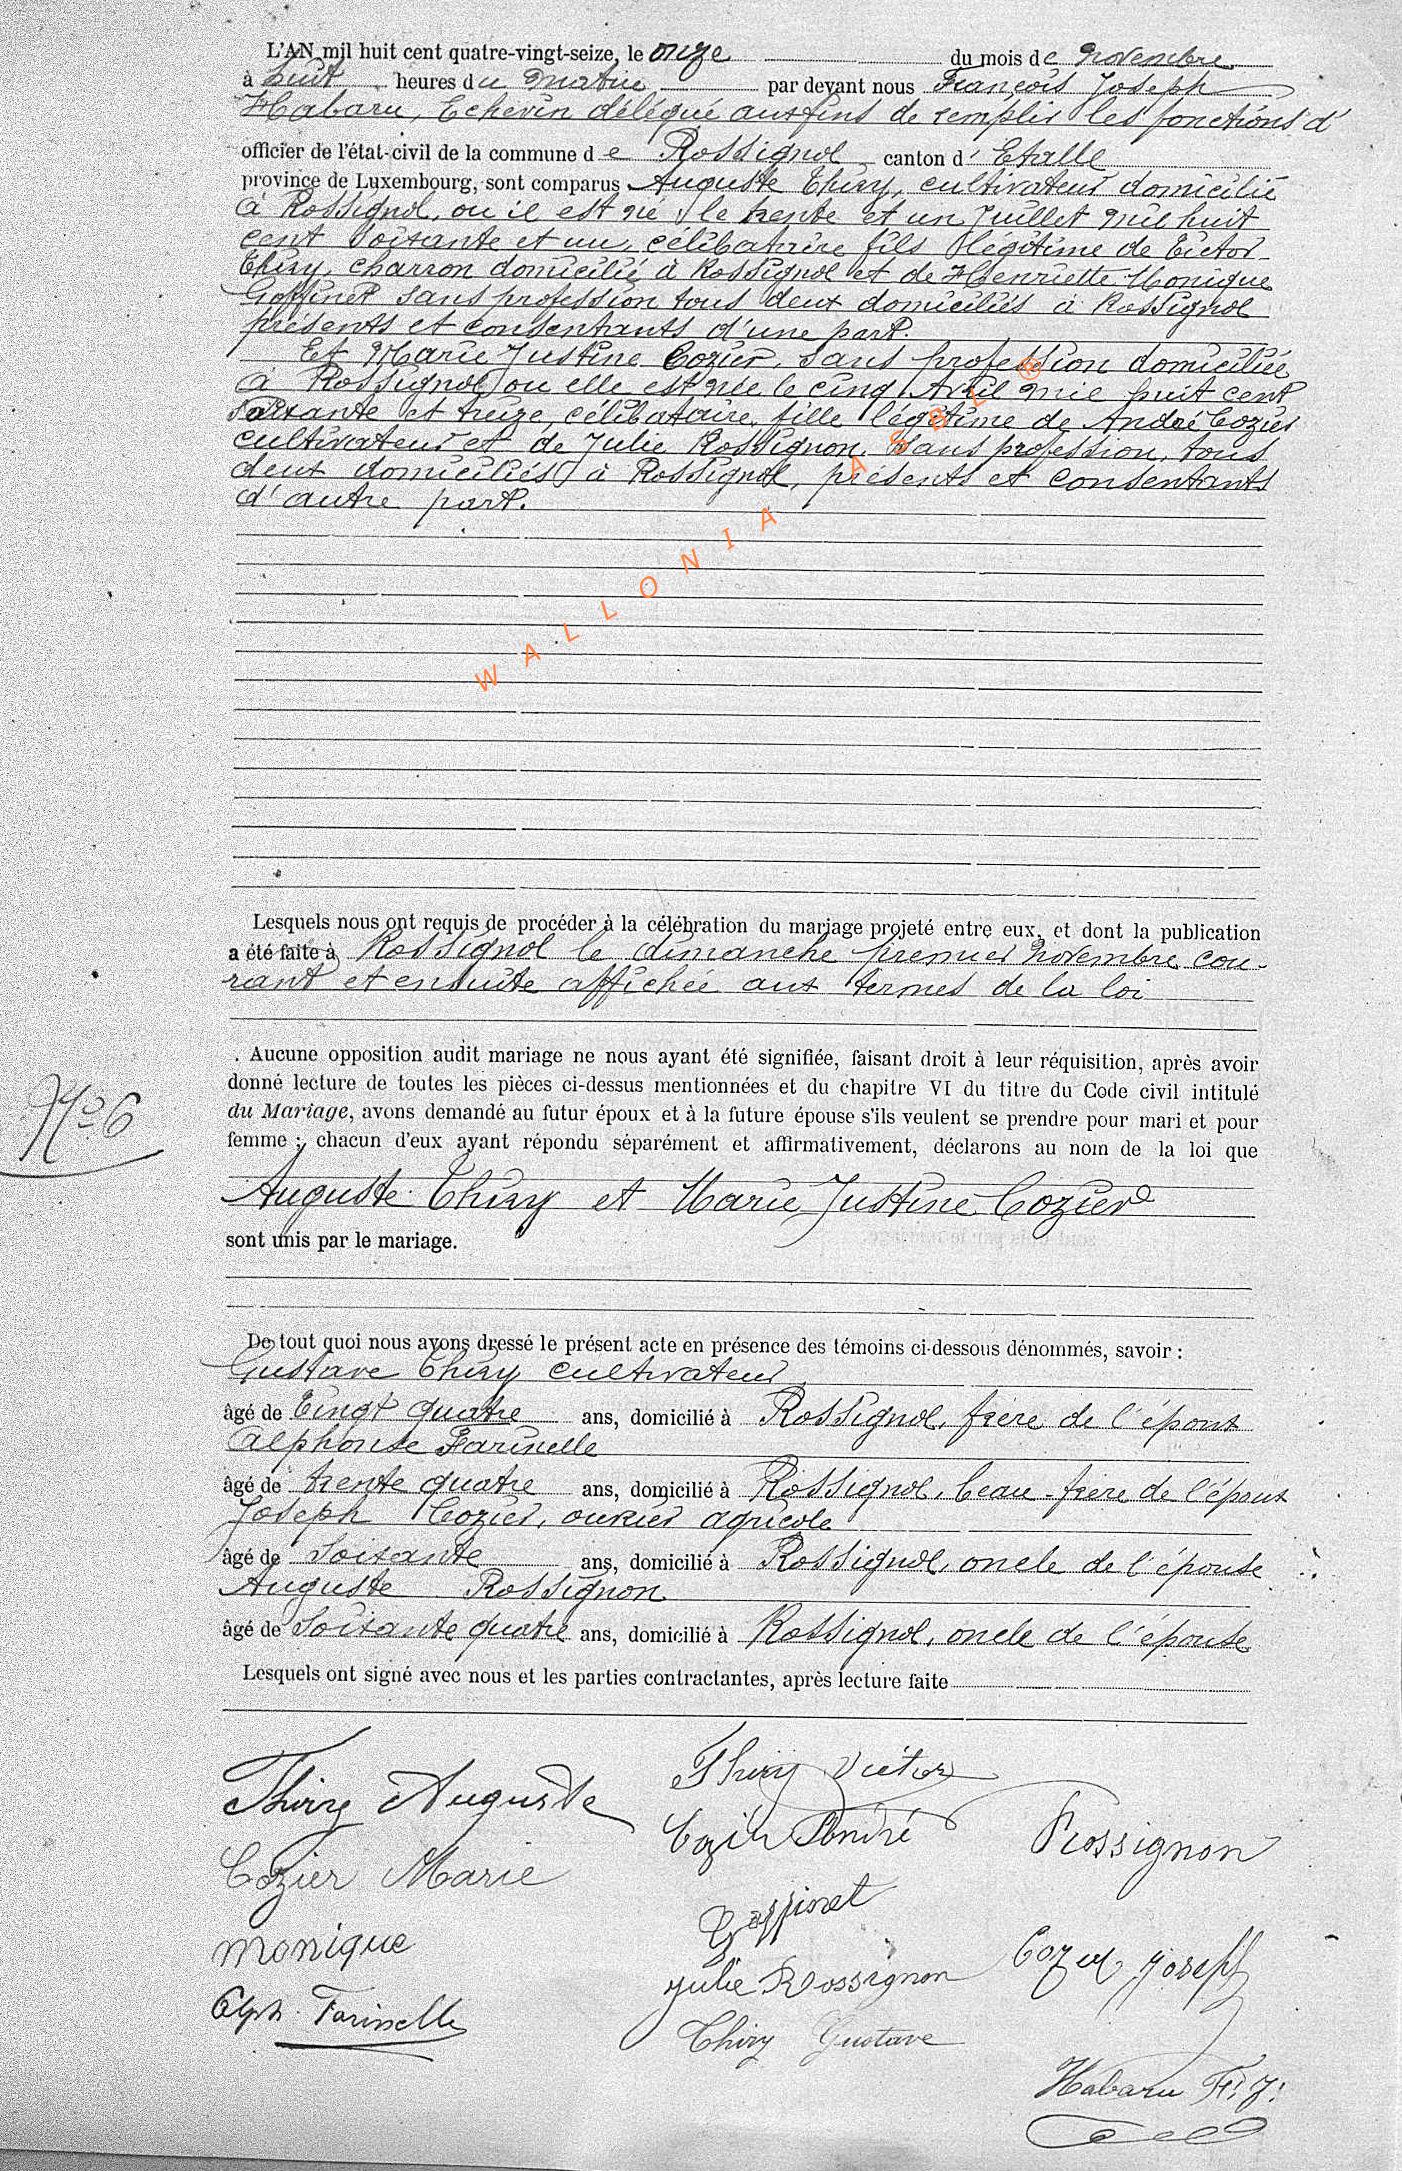 L'AN mil huit cent quatre-vingt-seize, le onze du mois de Novembre
à huit heures du matin par devant nous François Joseph
Habaru, Echevin délégué aux fins de remplir les fonctions d'
officier de l'état-civil de la commune de Rossignol canton d'Etalle
province de Luxembourg, sont comparus Auguste Thiry, cultivateur domicilié
à Rossignol, ou il est né le trente et un Juillet mil huit
cent soixante et un, célibataire fils légitime de Victor
Thiry, charron domicilié à Rossignol et de Henriette Monique
Goffinet sans profession tous deux domiciliés à Rossignol
présents et consentants d'une part.
Et Marie Justine Cozier, sans profession domiciliée
à Rossignol ou elle est née le cinq Avril mil huit cent
soixante et treize, célibataire, fille légitime de André Cozier
cultivateur et de Julie Rossignon, sans profession, tous
deux domiciliés à Rossignol, présents et consentants
d'autre part.
WALLONIA ASBL ®
Lesquels nous ont requis de procéder à la célébration du mariage projeté entre eux, et dont la publication
a été faite à Rossignol le dimanche premier Novembre cou-
rant et ensuite affichée aux termes de la loi
Aucune opposition audit mariage ne nous ayant été signifiée, faisant droit à leur réquisition, après avoir
donné lecture de toutes les pièces ci-dessus mentionnées et du chapitre VI du titre du Code civil intitulé
du Mariage, avons demandé au futur époux et à la future épouse s'ils veulent se prendre pour mari et pour
N° 6
femme ; chacun d'eux ayant répondu séparément et affirmativement, déclarons au nom de la loi que
Auguste Thiry et Marie Justine Cozier
sont unis par le mariage.
De tout quoi nous avons dressé le présent acte en présence des témoins ci-dessous dénommés, savoir :
Gustave Thiry cultivateur
âgé de Vingt quatre ans, domicilié à Rossignol, frère de l'époux
Alphonse Farinelle
âgé de trente quatre ans, domicilié à Rossignol, beau-frère de l'époux
Joseph Cozier, ouvrier agricole
âgé de Soixante ans, domicilié à Rossignol, oncle de l'épouse
Auguste Rossignon
âgé de Soixante quatre ans, domicilié à Rossignol, oncle de l'épouse
Lesquels ont signé avec nous et les parties contractantes, après lecture faite
Thiry Auguste
Thiry Victor
Cozier André
Rossignon
Cozier Marie
Goffinet
monique
Cozier Joseph
Julie Rossignon
Alph. Farinelle
Thiry Gustave
Habaru F. J.